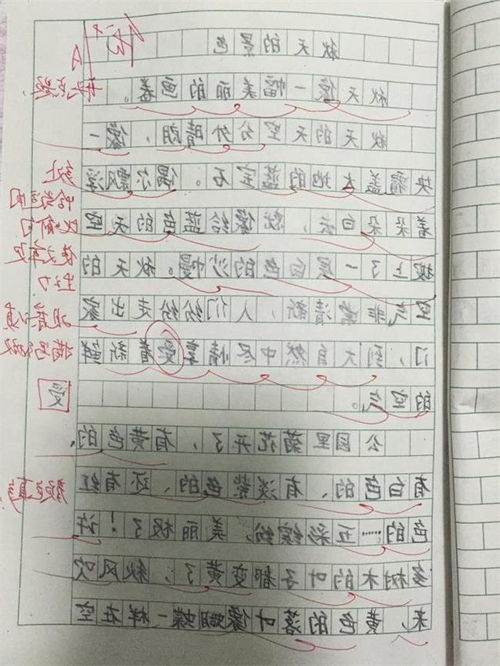 秋天的景色
秋天像一幅美丽的画卷。
秋天的天空分外晴朗，像一
块覆盖大地的蓝宝石。偶尔飘浮
着朵朵白云，就像给蓝色的天空
披上了一层白色的沙幔。秋天的
空气非常清新，人们纷纷走出家
门，到大自然中尽情享受着新鲜
的空气。
公园里菊花开了，有黄色的，
有白色的、有淡紫色的、还有红
色的……五彩缤纷，美丽极了！许
多树木的叶子都变黄了；秋风吹
来，黄色的落叶像蝴蝶一样在空